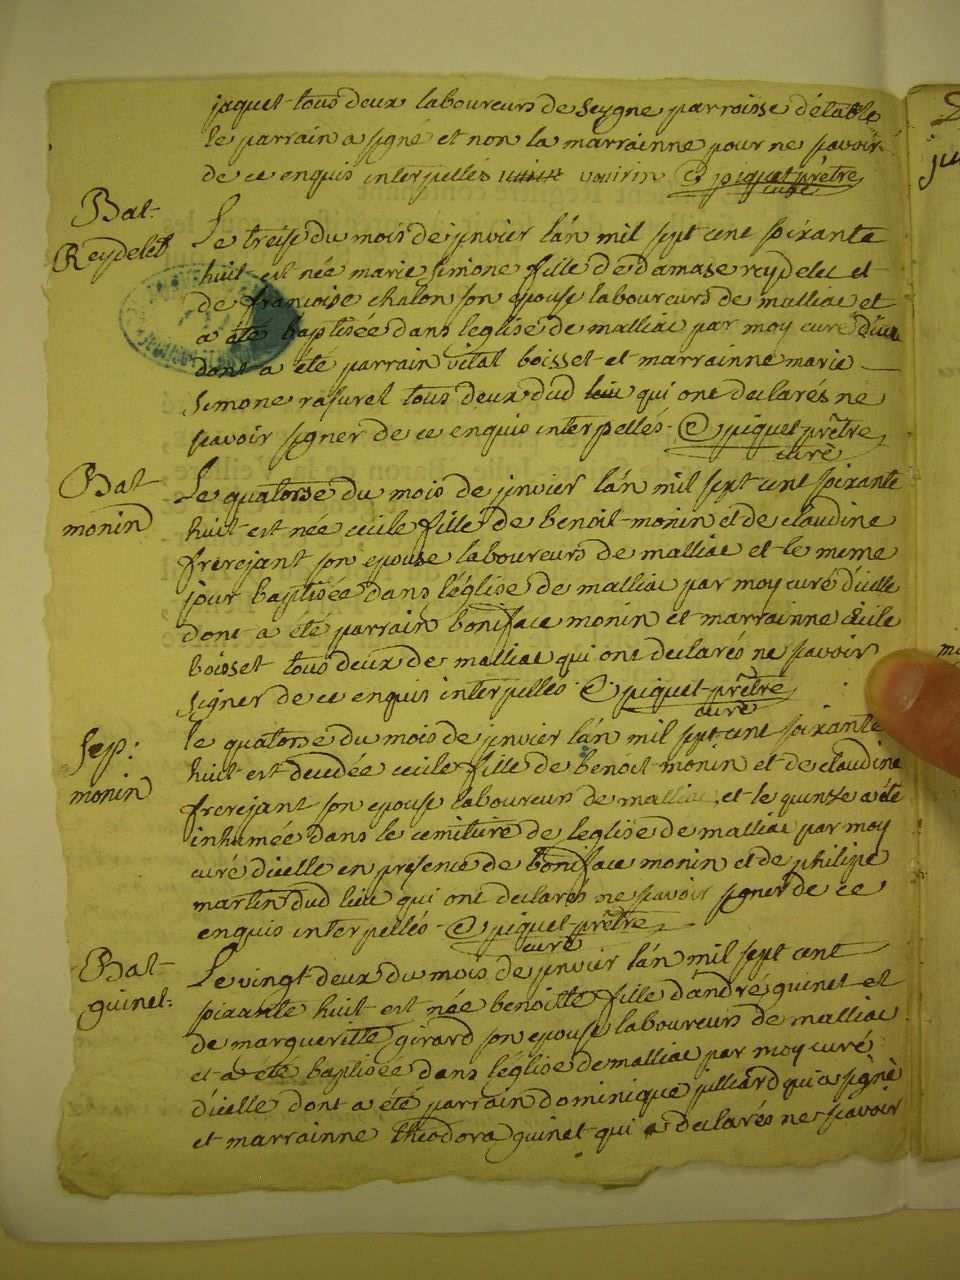 jaquet tous deux laboureurs de Seygne parroisse d'étable
le parrain a signé et non la marrainne pour ne scavoir
de ce enquis interpellés vourin piquet prêtre
curé
Bat
Reydelet
Le treise du mois de jenvier lán mil sept cent soixante
huit est née marie simone fille de damase reydelet et
de francoise chalon son epouse laboureurs de malliac et
a été baptisée dans leglise de malliac par moy curé d'icelle
dont a été parrain vital boisset et marrainne marie
simone rasurel tous deux dud lieu qui ont declarés ne
scavoir signer de ce enquis interpellés piquet prêtre
curé
Bat
monin
Le quatorse du mois de jenvier lán mil sept cent soixante
huit est née cecile fille de benoit monin et de claudine
frerejant son epouse laboureurs de malliac et le meme
jour baptisée dans léglise de malliac par moy curé d'icelle
dont a été parrain boniface monin et marrainne cécile
boisset tous deux de malliac qui ont declarés ne scavoir
signer de ce enquis interpellés piquet prêtre
curé
Sep:
monin
le quatorse du mois de jenvier lán mil sept cent soixante
huit est decedée cecile fille de benoit monin et de claudine
frerejant son epouse laboureurs de malliac, et le quinse a été
inhumée dans le cemitiere de leglise de malliac par moy
curé dicelle en presence de boniface monin et de philipe
martin dud lieu qui ont declarés ne scavoir signer de ce
enquis interpellés piquet prêtre
curé
Bat
guinet
Le vingt deux du mois de jenvier lán mil sept cent
soixante huit est née benoitte fille d'andré guinet et
de margueritte girard son epouse laboureurs de malliac
et a été baptisée dans léglise de malliac par moy curé
d'icelle dont a été parrain dominique juilliard qui a signé
et marrainne theodora guinet qui a declarés ne scavoir